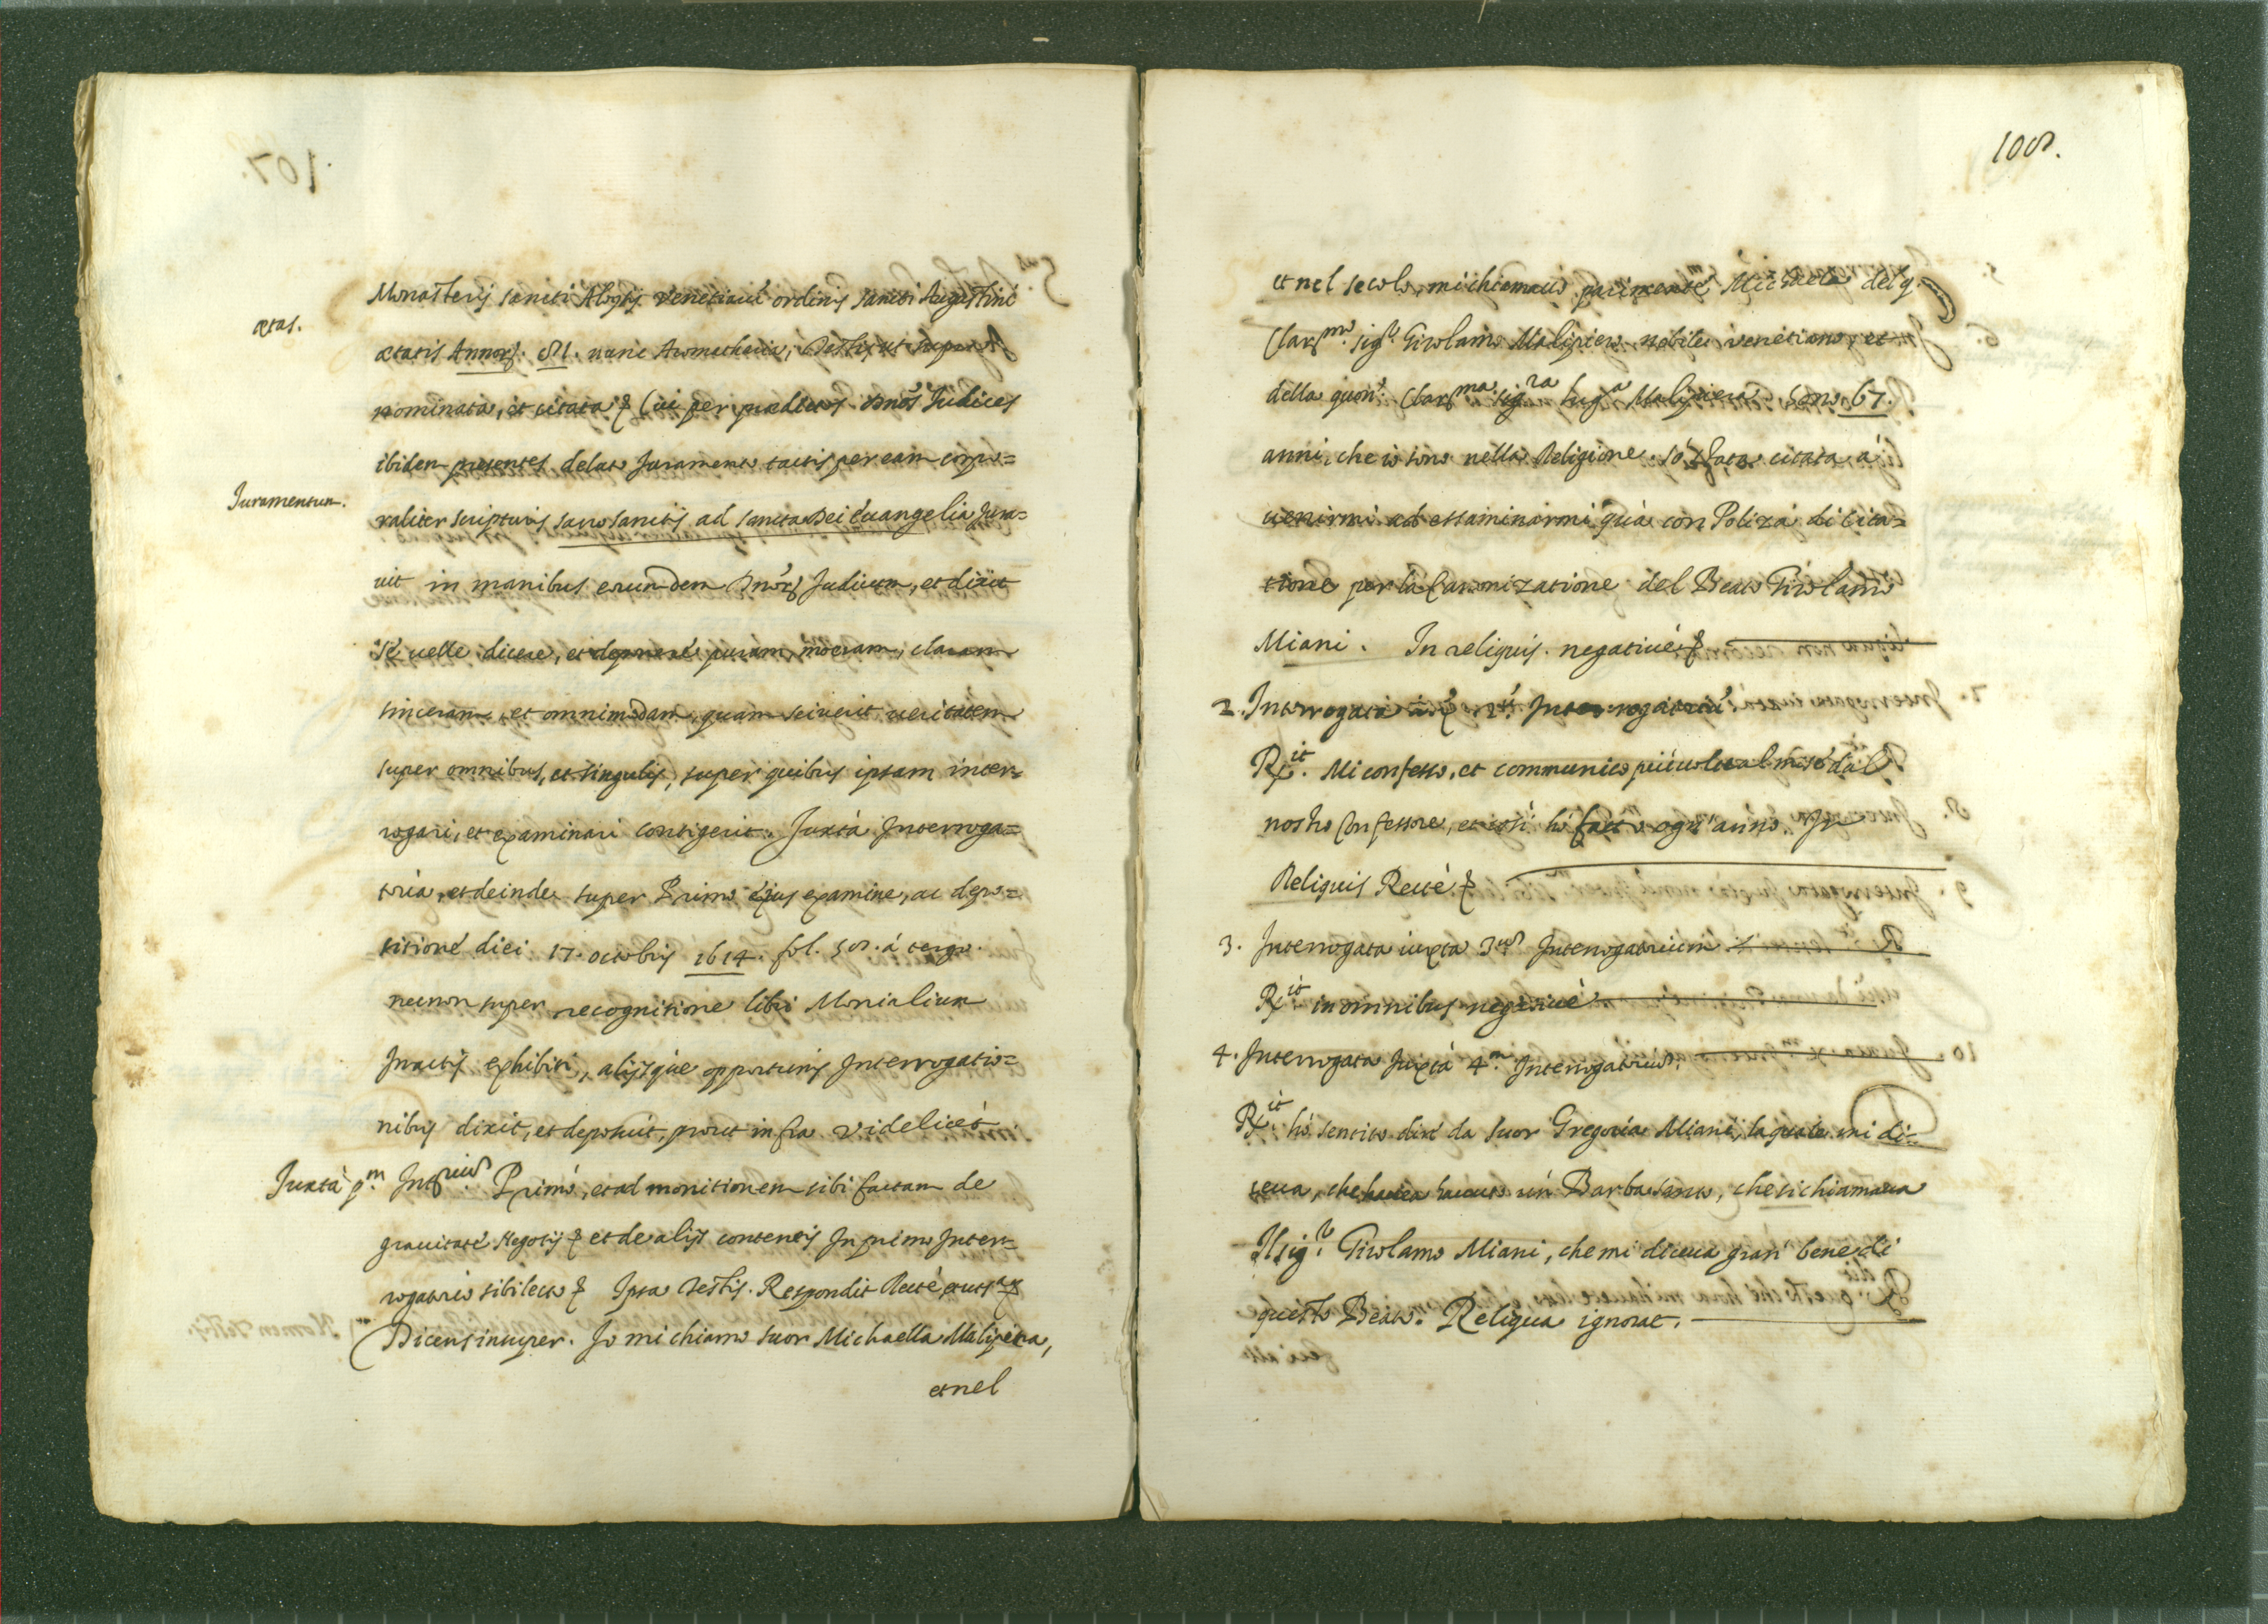 Monasterij sancti Aloysij Venetiarũ ordinis sancti Augustini
ætas.
ætatis Annorũ. 81. nunc Aromatharia, Testis ut supra
nominata, et citata & Cui per prædictos Dnos Judices
ibidem presentes delato Juramento tactis per eam corpo=
Juramentum.
raliter scripturis sacrosanctis ad sancta Dei euangelia Jura=
uit in manibus eorundem Dnõrũ Judicum, et dixit
se uelle dicere, et deponere puram, meram, claram
sinceram, et omnimodam, quam sciuerit ueritatem
super omnibus, et singulis, super quibus ipsam inter=
rogari, et examinari contigerit. Juxtà Interroga=
toria, et deinde super Primo eius examine, ac depo=
sitione diei 17. octobris 1614. fol. 58. à tergo.
necnon super recognitione libri Monialium
In actis exhibiti, alijsque opportunis Interrogatio=
nibus dixit, et deposuit, prout infra videlicet
Juxtà pm. Intrium Primò, et ad monitionem sibi factam de
grauitate Negotij & et de alijs contentis In primo Inter=
rogatorio sibi lecto & Ipsa Testis. Respondit Rectè
Dicens insuper. Io mi chiamo suor Michaella Malipiera,
et nel
108.
et nel secolo, mi chiamauo parimente Michaela del q.
Clarmo. sigr. Girolamo Malipiero, nobile venetiano, et
della quon: Clarma. sigra Malipiera. Sono 67.
anni, che io sono nella Religione. Sò stata citata à
uenirmi ad essaminarmi quà con Poliza di Cita=
tione per la Canonizatione del Beato Girolamo
Miani. In reliquis. negatiuè &
2. Interrogata iuxta 2m. Interrogatoriũ
Rxit. Mi confesso, et communico piú uolte al mese dal
nostro Confessore, et cosí hò fatto ogn'anno. In
Reliquis Rectè &
3. Interrogata iuxta 3um Interrogatorium
Rxit in omnibus negatiuè
4. Interrogata Juxtà 4m. Interrogatoriũ.
Rxit. hò sentito dire da suor Gregoria Miani, laquale mi di=
ceua, che hauea hauuto un Barba santo, che si chiamaua
Il sigr. Girolamo Miani, che mi diceua gran bene di
questo Beato. Reliqua ignorat.